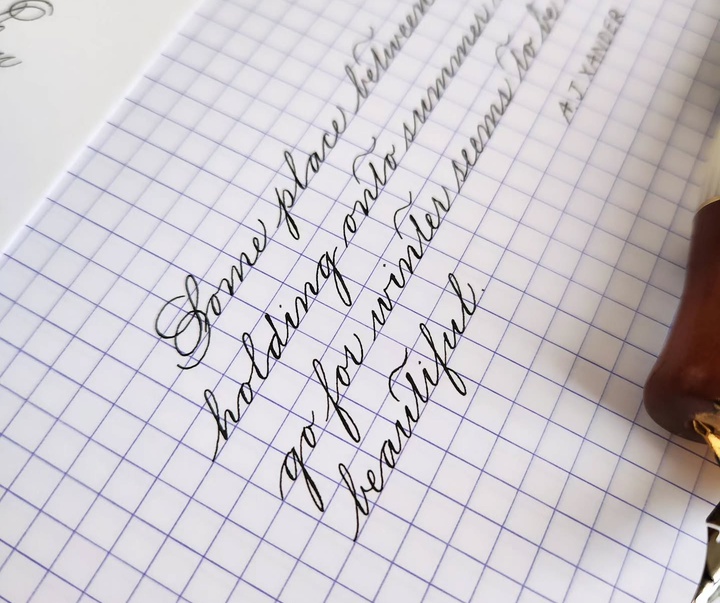 Some place between
holding onto summer
go for winter seems to be
beautiful.
A.J. XANDER